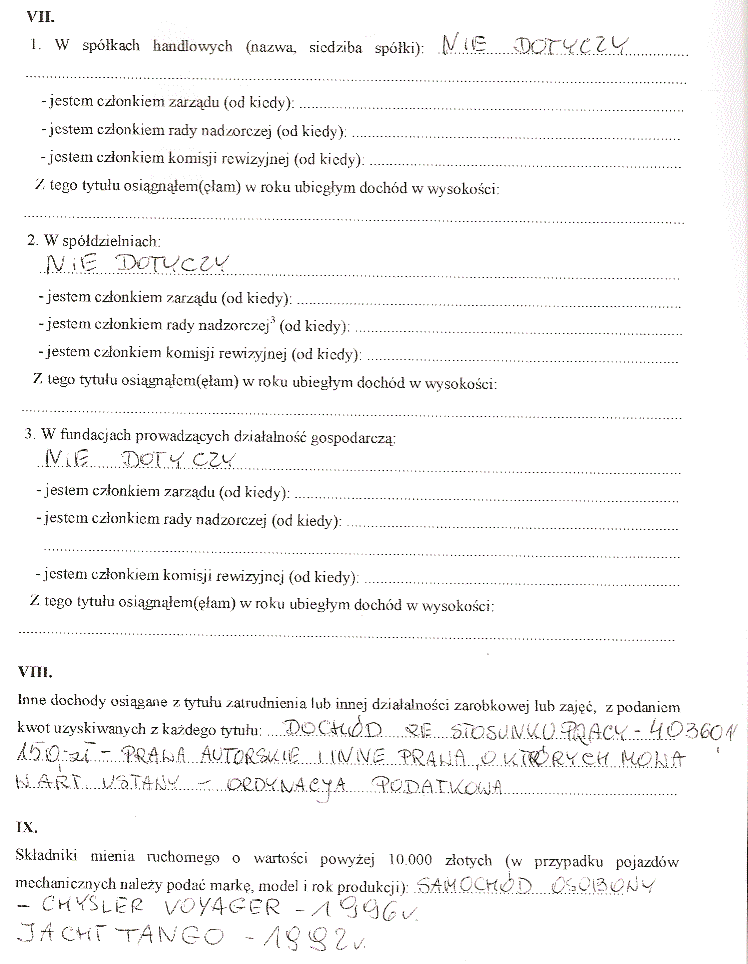 VII.
1. W spółkach handlowych (nazwa, siedziba spółki): NIE DOTYCZY
- jestem członkiem zarządu (od kiedy):
- jestem członkiem rady nadzorczej (od kiedy):
- jestem członkiem komisji rewizyjnej (od kiedy):
Z tego tytułu osiągnąłem(ęłam) w roku ubiegłym dochód w wysokości:
2. W spółdzielniach:
NIE DOTYCZY
- jestem członkiem zarządu (od kiedy):
- jestem członkiem rady nadzorczej³ (od kiedy):
- jestem członkiem komisji rewizyjnej (od kiedy):
Z tego tytułu osiągnąłem(ęłam) w roku ubiegłym dochód w wysokości:
3. W fundacjach prowadzących działalność gospodarczą:
NIE DOTYCZY
- jestem członkiem zarządu (od kiedy):
- jestem członkiem rady nadzorczej (od kiedy):
- jestem członkiem komisji rewizyjnej (od kiedy):
Z tego tytułu osiągnąłem(ęłam) w roku ubiegłym dochód w wysokości:
VIII.
Inne dochody osiągane z tytułu zatrudnienia lub innej działalności zarobkowej lub zajęć, z podaniem
kwot uzyskiwanych z każdego tytułu: DOCHÓD ZE STOSUNKU PRACY -
150 zł - PRAWA AUTORSKIE I INNE PRAWA, O KTÓRYCH MOWA
W ART USTAWY - ORDYNACYA PODATKOWA
IX.
Składniki mienia ruchomego o wartości powyżej 10.000 złotych (w przypadku pojazdów
mechanicznych należy podać markę, model i rok produkcji): SAMOCHÓD OSOBOWY
- CHYSLER VOYAGER - 1996 r.
JACHT TANGO - 1992 r.